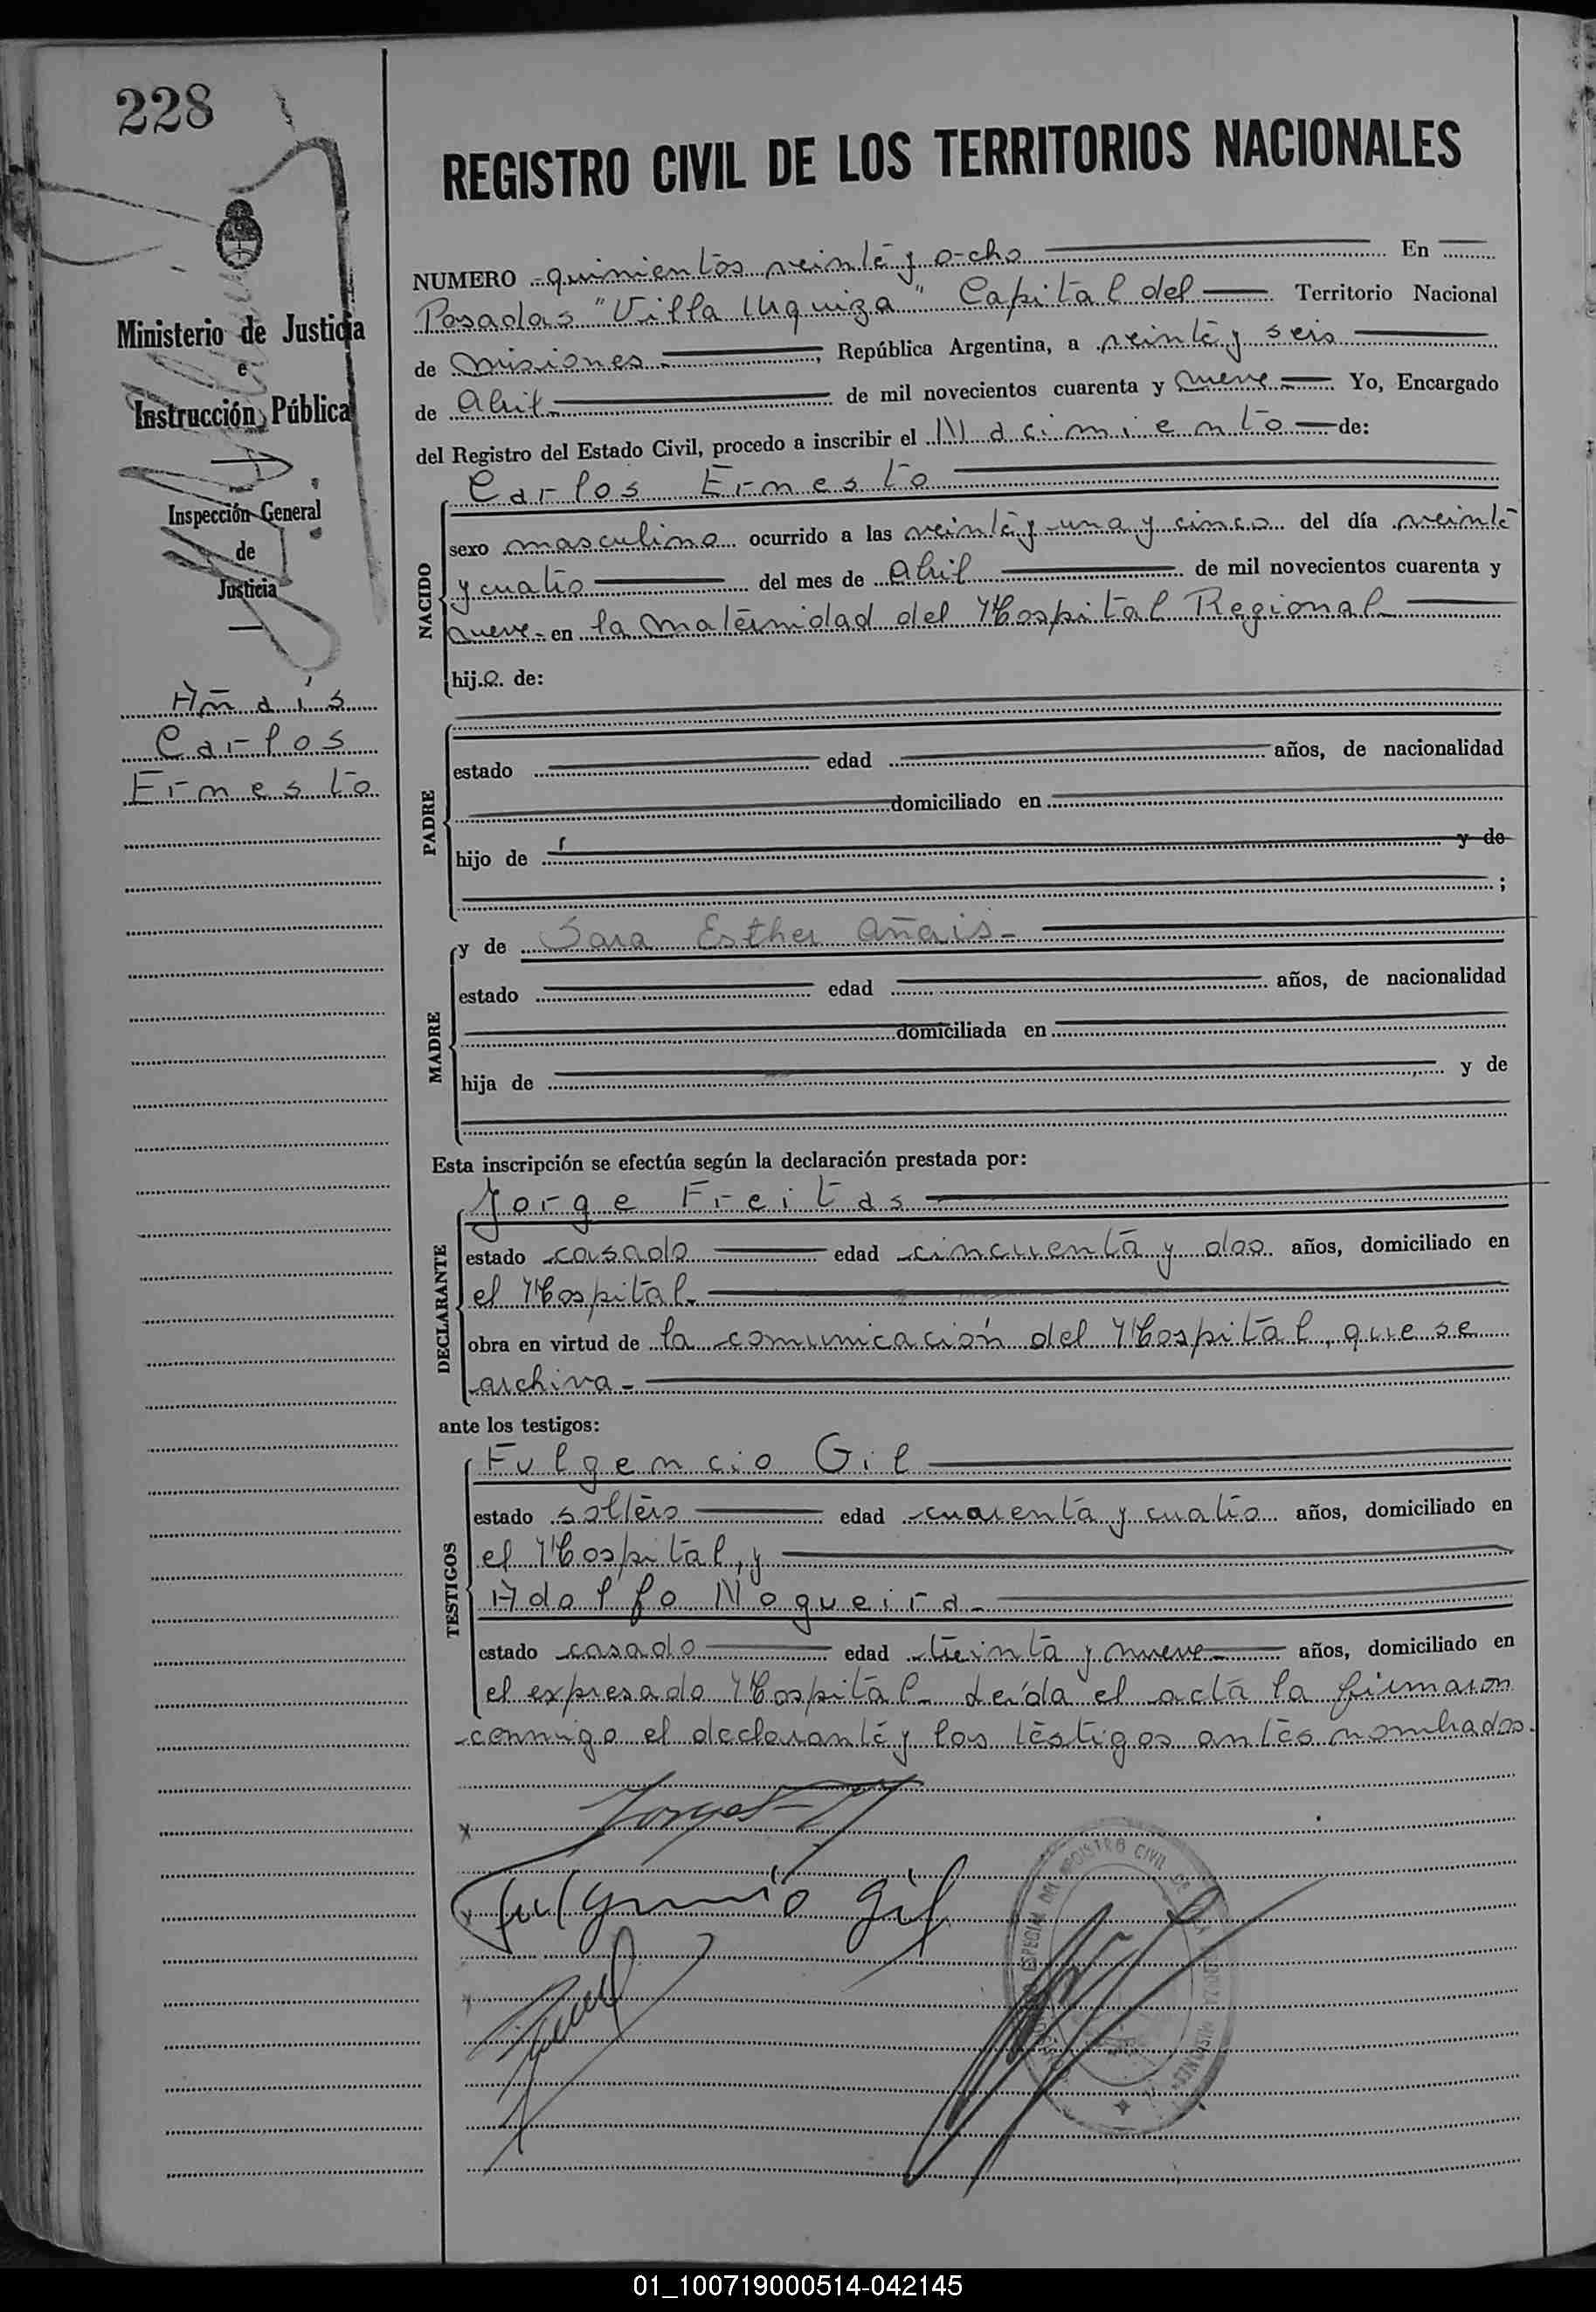 228
Ministerio de Justicia
e
Instrucción Pública
Inspección General
de
Justicia
Añais
Carlos
Ernesto
REGISTRO CIVIL DE LOS TERRITORIOS NACIONALES
NUMERO quinientos veinte y ocho En
Posadas "Villa Urquiza" Capital del Territorio Nacional
de Misiones, República Argentina, a veinte y seis
de Abril de mil novecientos cuarenta y nueve Yo, Encargado
del Registro del Estado Civil, procedo a inscribir el Nacimiento de:
NACIDO
Carlos Ernesto
sexo masculino ocurrido a las veinte y una y cinco del día veinte
y cuatro del mes de Abril de mil novecientos cuarenta y
nueve en la maternidad del Hospital Regional
hijo de:
PADRE
estado edad años, de nacionalidad
domiciliado en
hijo de y de
;
MADRE
y de Sara Esther Añais
estado edad años, de nacionalidad
domiciliada en
hija de y de
Esta inscripción se efectúa según la declaración prestada por:
DECLARANTE
Jorge Freitas
estado casado edad cincuenta y dos años, domiciliado en
el Hospital
obra en virtud de la comunicación del Hospital, que se
archiva
ante los testigos:
TESTIGOS
Fulgencio Gil
estado soltero edad cuarenta y cuatro años, domiciliado en
el Hospital, y
Adolfo Nogueira
estado casado edad treinta y nueve años, domiciliado en
el expresado Hospital. Leída el acta la firmaron
conmigo el declarante y los testigos antes nombrados.
Fulgencio Gil
01_100719000514-042145